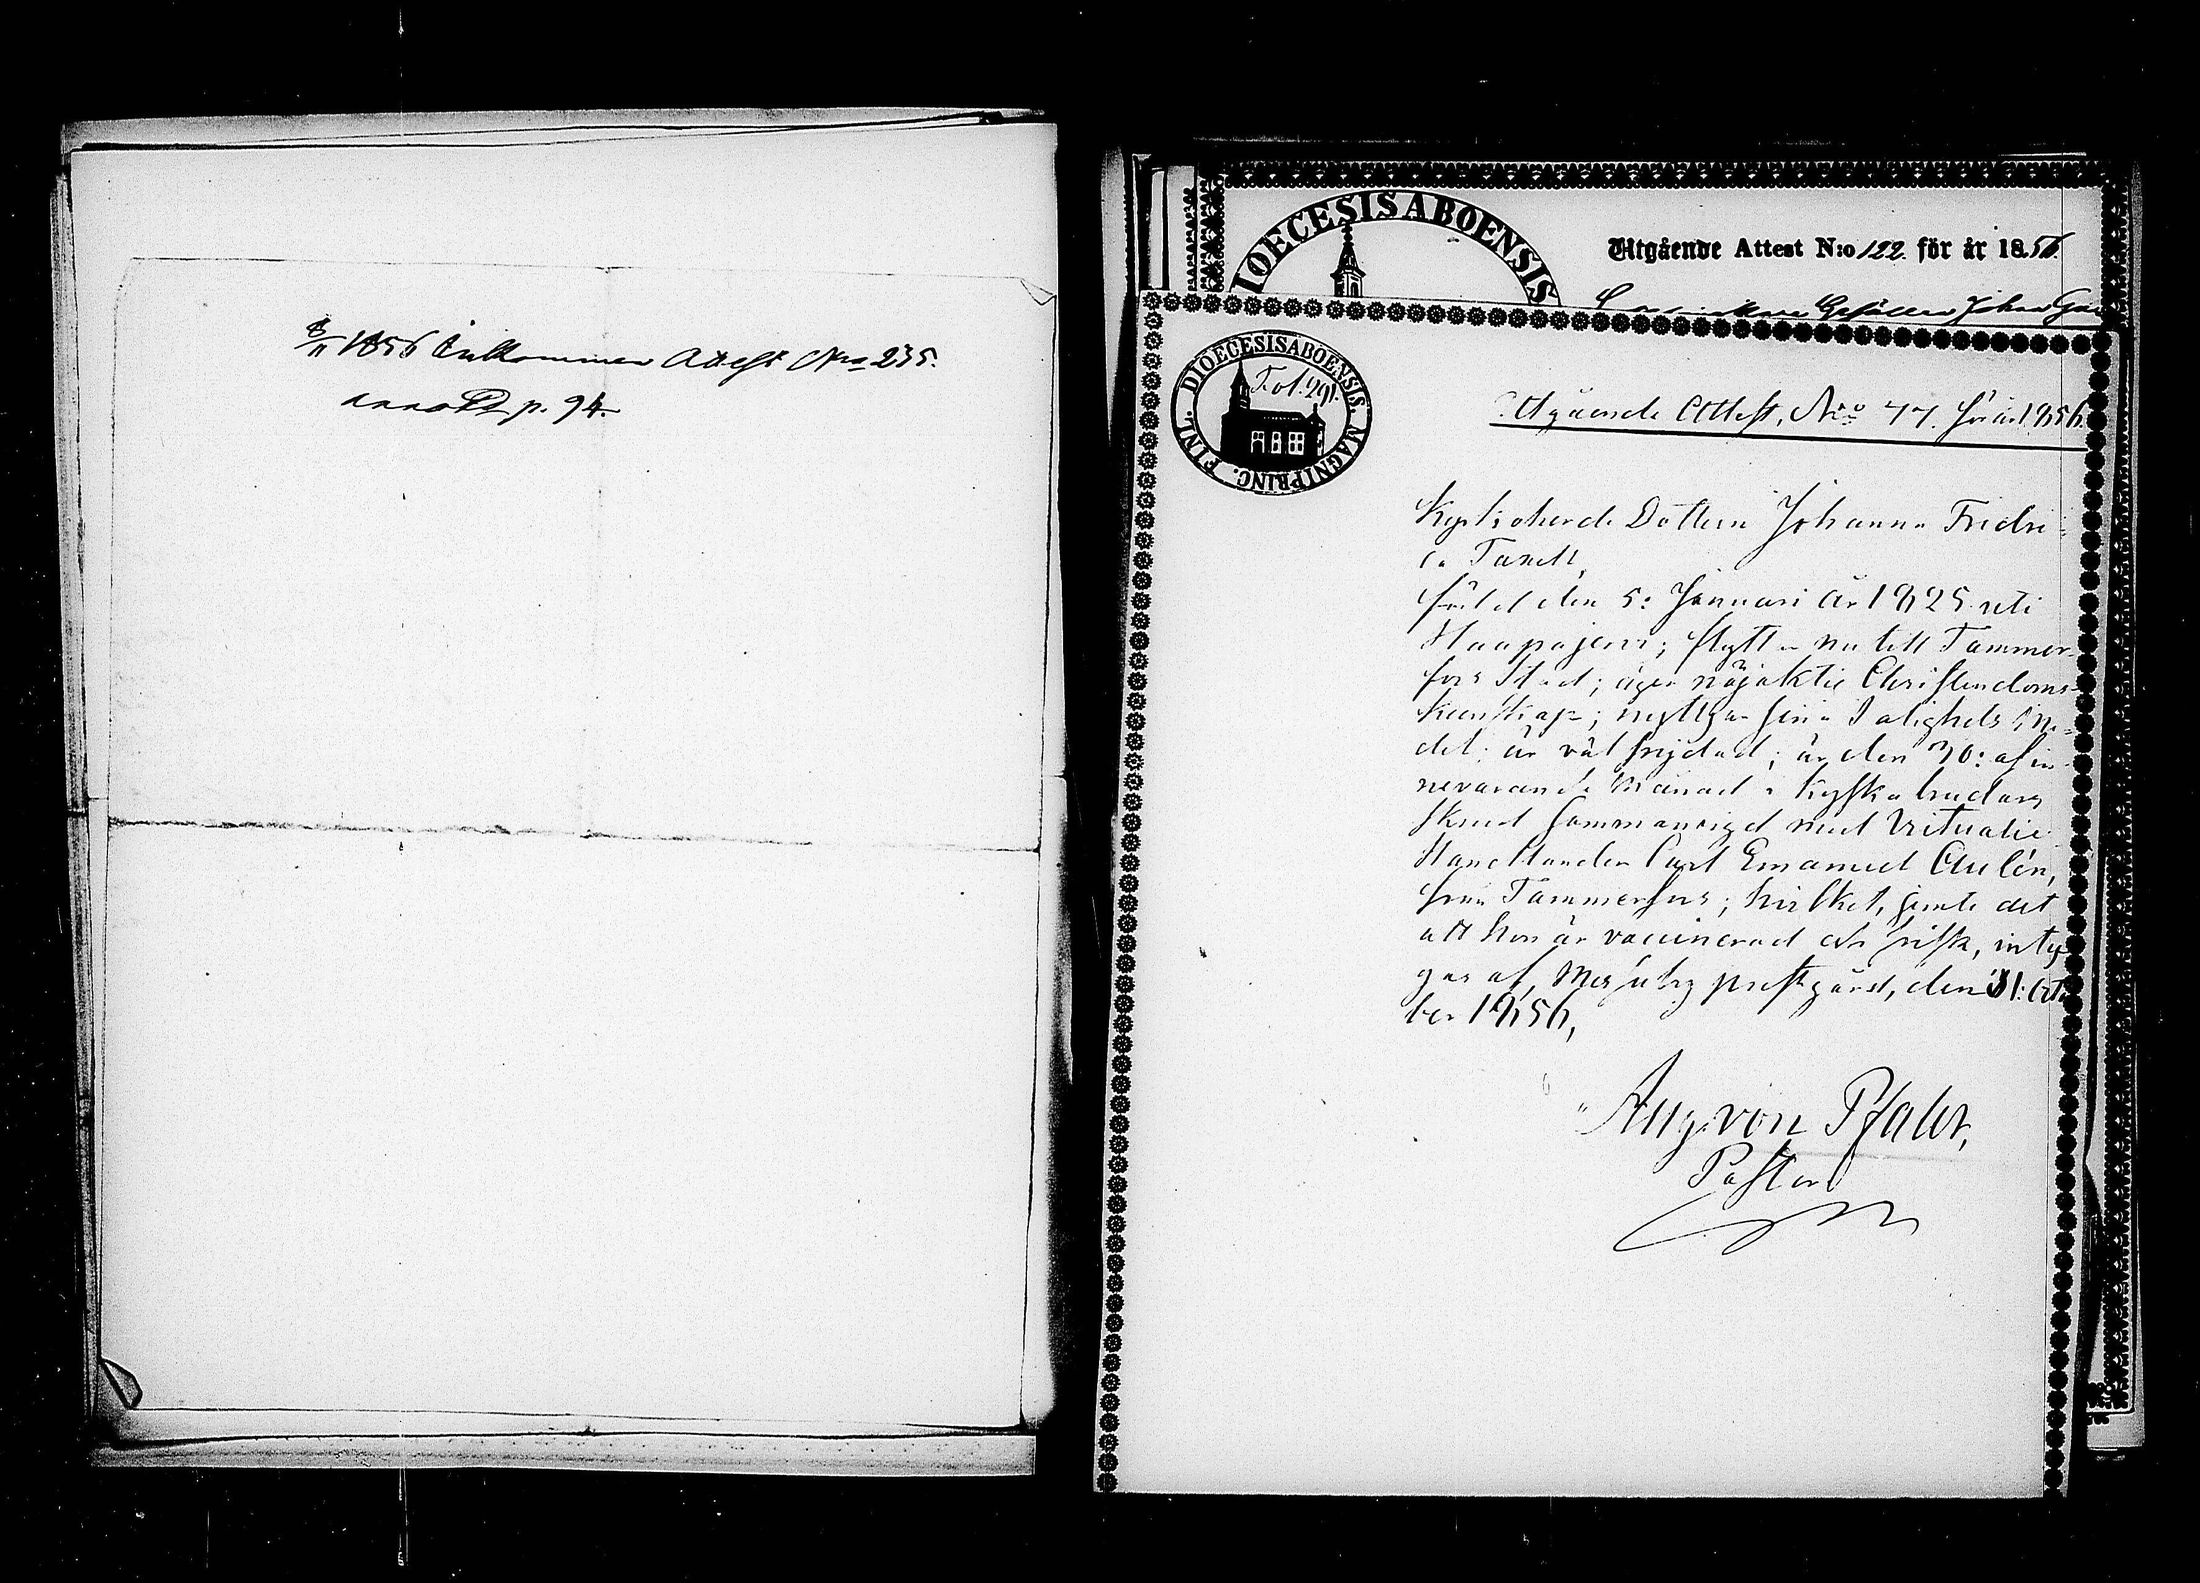 8/11 1856 Inkommen Attest Nro 235.
annot p. 94.
DIOECESIS ABOENSIS
Utgående Attest N:o 122. för år 1856.
Gesällen Johan
DIOECESIS ABOENSIS. MAGNI PRINC. FINL.
Fol. 291.
Utgående Attest, Nro 77. för år 1856.
Kyrkoherde Dottern Johanna Fridri-
ca Tanell,
född den 5: Januari år 1825 uti
Haapajervi; flyttar nu till Tammer-
fors Stad; äger nöjaktig Christendoms-
kunskap; nyttjar sina Salighets me-
del; är väl frejdad; är den 30: af in-
nevarande Månad i kyska brudars
skrud sammanvigd med Victualie
Handlanden Carl Emanuel Aulén,
från Tammerfors; hvilket, jemte det
att hon är vaccinerad och frisk, inty-
gas af, Messuby prestgård, den 31: Octo
ber 1856,
Aug. von Pfaler,
Pastor